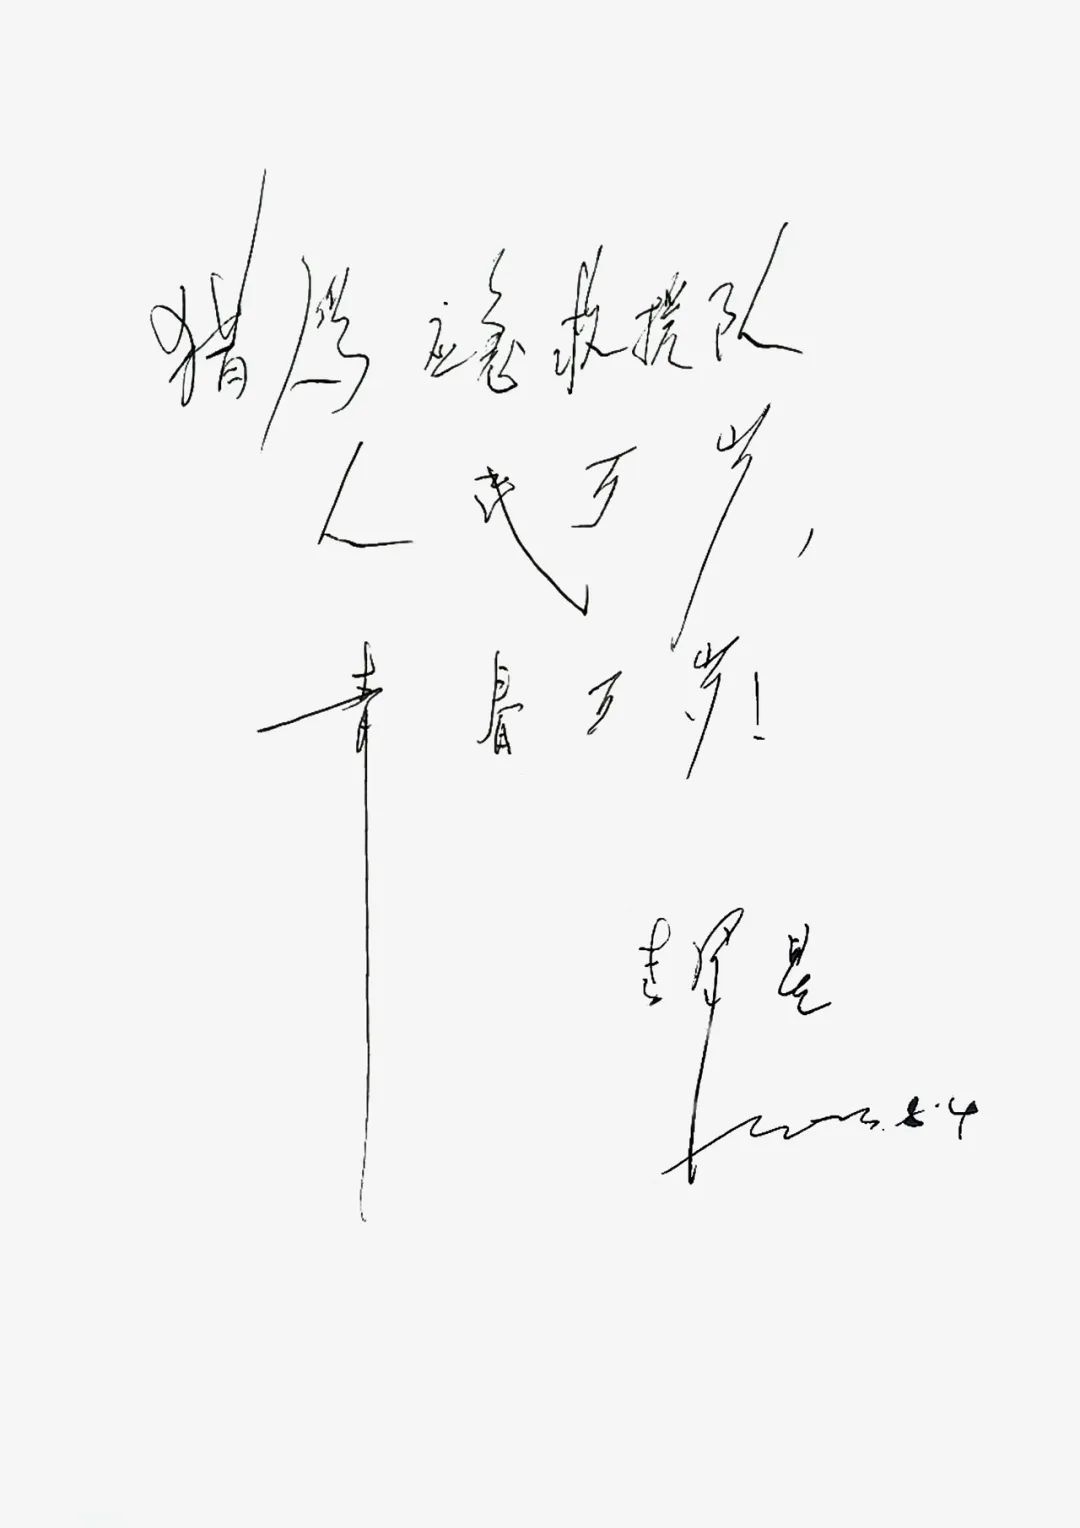 猎鹰应急救援队
人民万岁,
青春万岁!
5.4